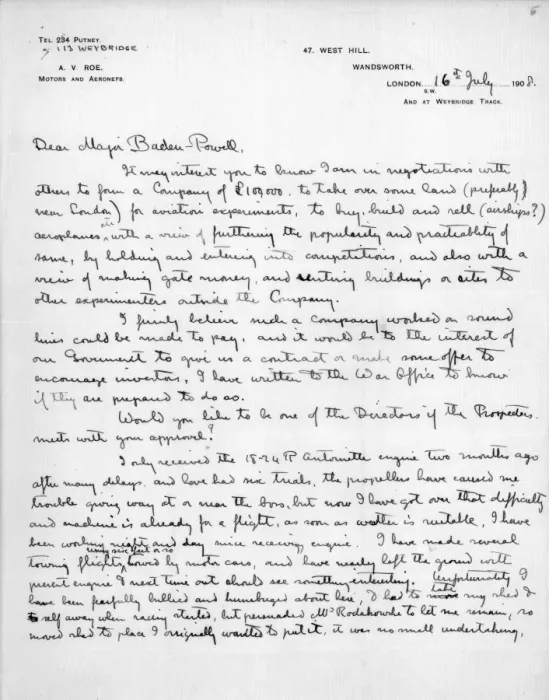 TEL. 234 PUTNEY.
" 113 WEYBRIDGE
A. V. ROE.
MOTORS AND AERONEFS.
47, WEST HILL,
WANDSWORTH,
LONDON, 16th July 1908.
S.W.
AND AT WEYBRIDGE TRACK.
Dear Major Baden-Powell,
It may interest you to know I am in negotiations with
others to form a Company of £100,000, to take over some land (preferably
near London) for aviation experiments, to buy, build and sell (airships?)
aeroplanes etc, with a view of furthering the popularity and practicability of
same, by holding and entering into competitions, and also with a
view of making gate money, and renting buildings or sites to
other experimenters outside the Company.
I firmly believe such a company worked on sound
lines could be made to pay, and it would be to the interest of
our Government to give us a contract or make some offer to
encourage inventors, I have written to the War Office to know
if they are prepared to do so.
Would you like to be one of the Directors if the Prospectus
meets with your approval?
I only received the 18-24 HP Antoinette engine two months ago
after many delays, and have had six trials, the propellers have caused me
trouble giving way at or near the boss, but now I have got over that difficulty
and machine is already for a flight, as soon as weather is suitable, I have
been working night and day since receiving engine. I have made several
towing flights, towed by motor cars, and have nearly left the ground with
present engine & next time out should see something interesting. Unfortunately I
have been fearfully bullied and humbugged about here, I had to take my shed &
self away when racing started, but persuaded Mr Rodakowski to let me remain, so
moved shed to place I originally wanted to put it, it was no small undertaking,